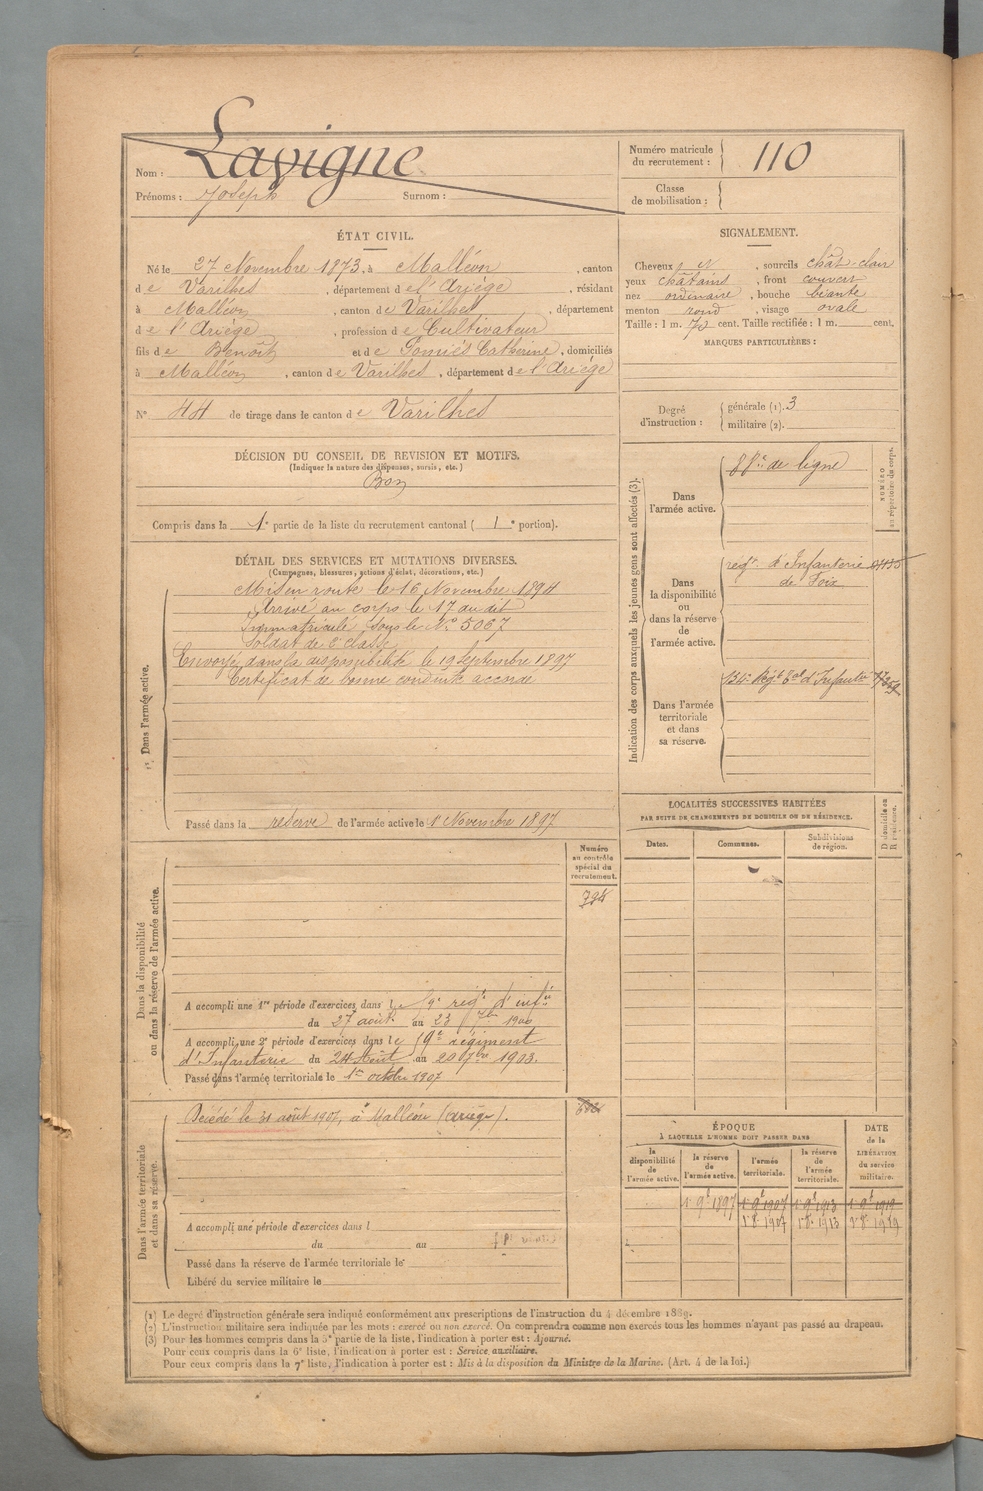 Nom : Lavigne
Prénoms : Joseph Surnom :
Numéro matricule du recrutement : 110
Classe de mobilisation :
ÉTAT CIVIL.
Né le 27 Novembre 1873, à Malléon, canton
de Varilhes, département de l'Ariège, résidant
à Malléon, canton de Varilhes, département
de l'Ariège, profession de Cultivateur
fils de Benoît et de Gomiès Catherine, domiciliés
à Malléon, canton de Varilhes, département de l'Ariège
N° 44 de tirage dans le canton de Varilhes
SIGNALEMENT.
Cheveux, sourcils chât. clair
yeux châtains, front couvert
nez ordinaire, bouche béante
menton rond, visage ovale
Taille : 1 m. cent. Taille rectifiée : 1 m. cent.
MARQUES PARTICULIÈRES :
Degré d'instruction : générale (1). 3
militaire (2).
DÉCISION DU CONSEIL DE REVISION ET MOTIFS.
(Indiquer la nature des dispenses, sursis, etc.)
Bon
Compris dans la 1e partie de la liste du recrutement cantonal ( 1e portion).
DÉTAIL DES SERVICES ET MUTATIONS DIVERSES.
(Campagnes, blessures, actions d'éclat, décorations, etc.)
Dans l'armée active.
Mis en route le 16 Novembre 1894
Arrivé au corps le 17 du dit
Immatriculé sous le N° 5067
Soldat de 2e classe
Envoyé dans la disponibilité le 19 Septembre 1897
Certificat de bonne conduite accordé
Passé dans la réserve de l'armée active le 1 Novembre 1897
Indication des corps auxquels les jeunes gens sont affectés (3).
NUMÉRO au répertoire du corps.
Dans l'armée active.
88e de ligne
Dans la disponibilité ou dans la réserve de l'armée active.
régt. d'Infanterie
de Foix
Dans l'armée territoriale et dans sa réserve.
134e Régt tal d'Infanterie
LOCALITÉS SUCCESSIVES HABITÉES
PAR SUITE DE CHANGEMENTS DE DOMICILE OU DE RÉSIDENCE.
Dates. Communes. Subdivisions de région.
D domicile ou R résidence.
Numéro au contrôle spécial du recrutement.
Dans la disponibilité ou dans la réserve de l'armée active.
A accompli une 1re période d'exercices dans le 59e régt d'infie
du 27 août au 23 7bre 1900
A accompli une 2e période d'exercices dans le 59e régiment
d'Infanterie du 24 Août au 20 7bre 1903.
Passé dans l'armée territoriale le 1er octobre 1907
Dans l'armée territoriale et dans sa réserve.
Décédé le 31 août 1907, à Malléon (Ariège).
A accompli une période d'exercices dans l
du au
Passé dans la réserve de l'armée territoriale le
Libéré du service militaire le
ÉPOQUE
A LAQUELLE L'HOMME DOIT PASSER DANS
la disponibilité de l'armée active. la réserve de l'armée active. l'armée territoriale. la réserve de l'armée territoriale.
DATE de la LIBÉRATION du service militaire.
1er 9b 1897 1er 9b 1907 1er 9b 1913 1er 9b 1919
1er 8b 1907 1er 8b 1913 1er 8b 1919
(1) Le degré d'instruction générale sera indiqué conformément aux prescriptions de l'instruction du 4 décembre 1889.
(2) L'instruction militaire sera indiquée par les mots : exercé ou non exercé. On comprendra comme non exercés tous les hommes n'ayant pas passé au drapeau.
(3) Pour les hommes compris dans la 5e partie de la liste, l'indication à porter est : Ajourné.
Pour ceux compris dans la 6e liste, l'indication à porter est : Service auxiliaire.
Pour ceux compris dans la 7e liste, l'indication à porter est : Mis à la disposition du Ministre de la Marine. (Art. 4 de la loi.)